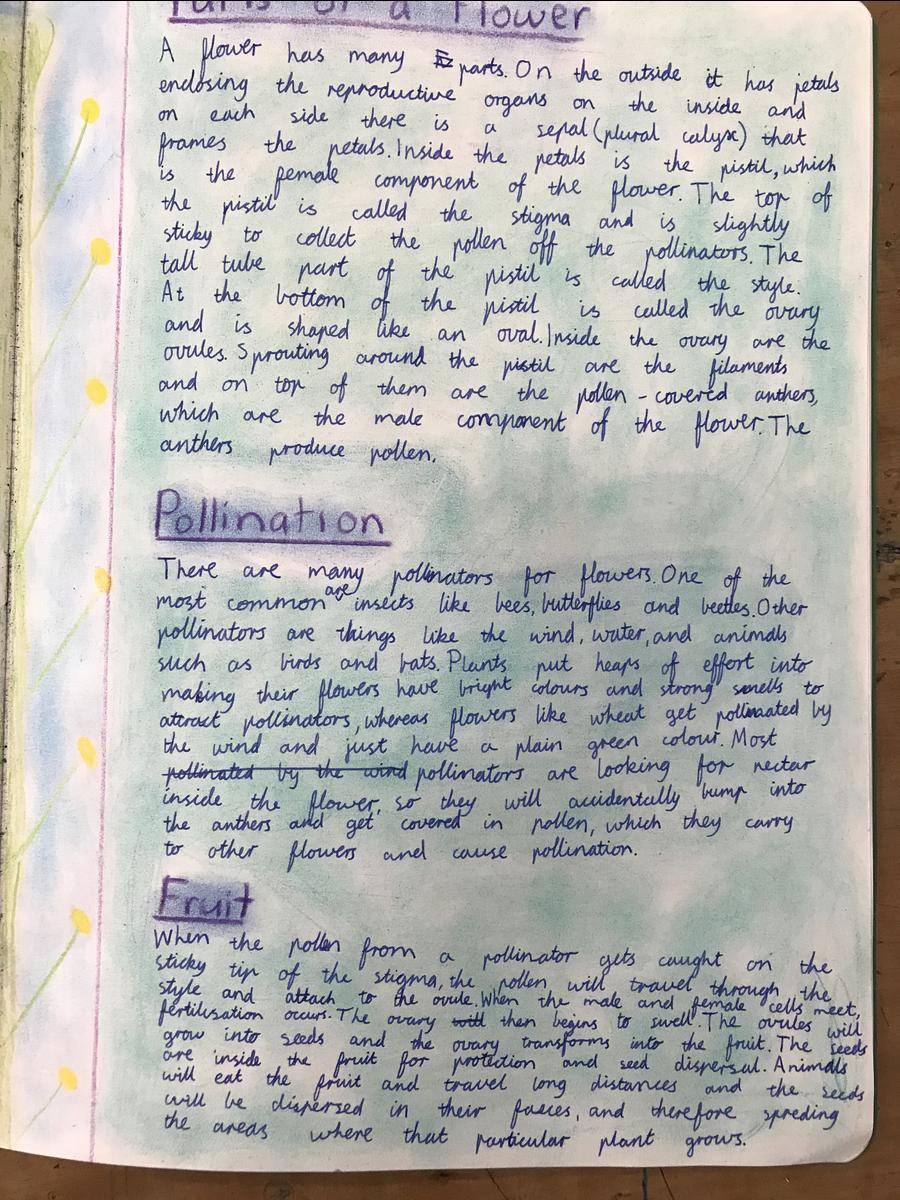 Parts of a Flower
A flower has many parts. On the outside it has petals
enclosing the reproductive organs on the inside and
on each side there is a sepal (plural calyx) that
frames the petals. Inside the petals is the pistil, which
is the female component of the flower. The top of
the pistil is called the stigma and is slightly
sticky to collect the pollen off the pollinators. The
tall tube part of the pistil is called the style.
At the bottom of the pistil is called the ovary
and is shaped like an oval. Inside the ovary are the
ovules. Sprouting around the pistil are the filaments
and on top of them are the pollen-covered anthers,
which are the male component of the flower. The
anthers produce pollen.
Pollination
There are many pollinators for flowers. One of the
most common are insects like bees, butterflies and beetles. Other
pollinators are things like the wind, water, and animals
such as birds and bats. Plants put heaps of effort into
making their flowers have bright colours and strong smells to
attract pollinators, whereas flowers like wheat get pollinated by
the wind and just have a plain green colour. Most
pollinated by the wind pollinators are looking for nectar
inside the flower, so they will accidentally bump into
the anthers and get covered in pollen, which they carry
to other flowers and cause pollination.
Fruit
When the pollen from a pollinator gets caught on the
sticky tip of the stigma, the pollen will travel through the
style and attach to the ovule. When the male and female cells meet,
fertilisation occurs. The ovary will then begins to swell. The ovules will
grow into seeds and the ovary transforms into the fruit. The seeds
are inside the fruit for protection and seed dispersal. Animals
will eat the fruit and travel long distances and the seeds
will be dispersed in their faeces, and therefore spreding
the areas where that particular plant grows.